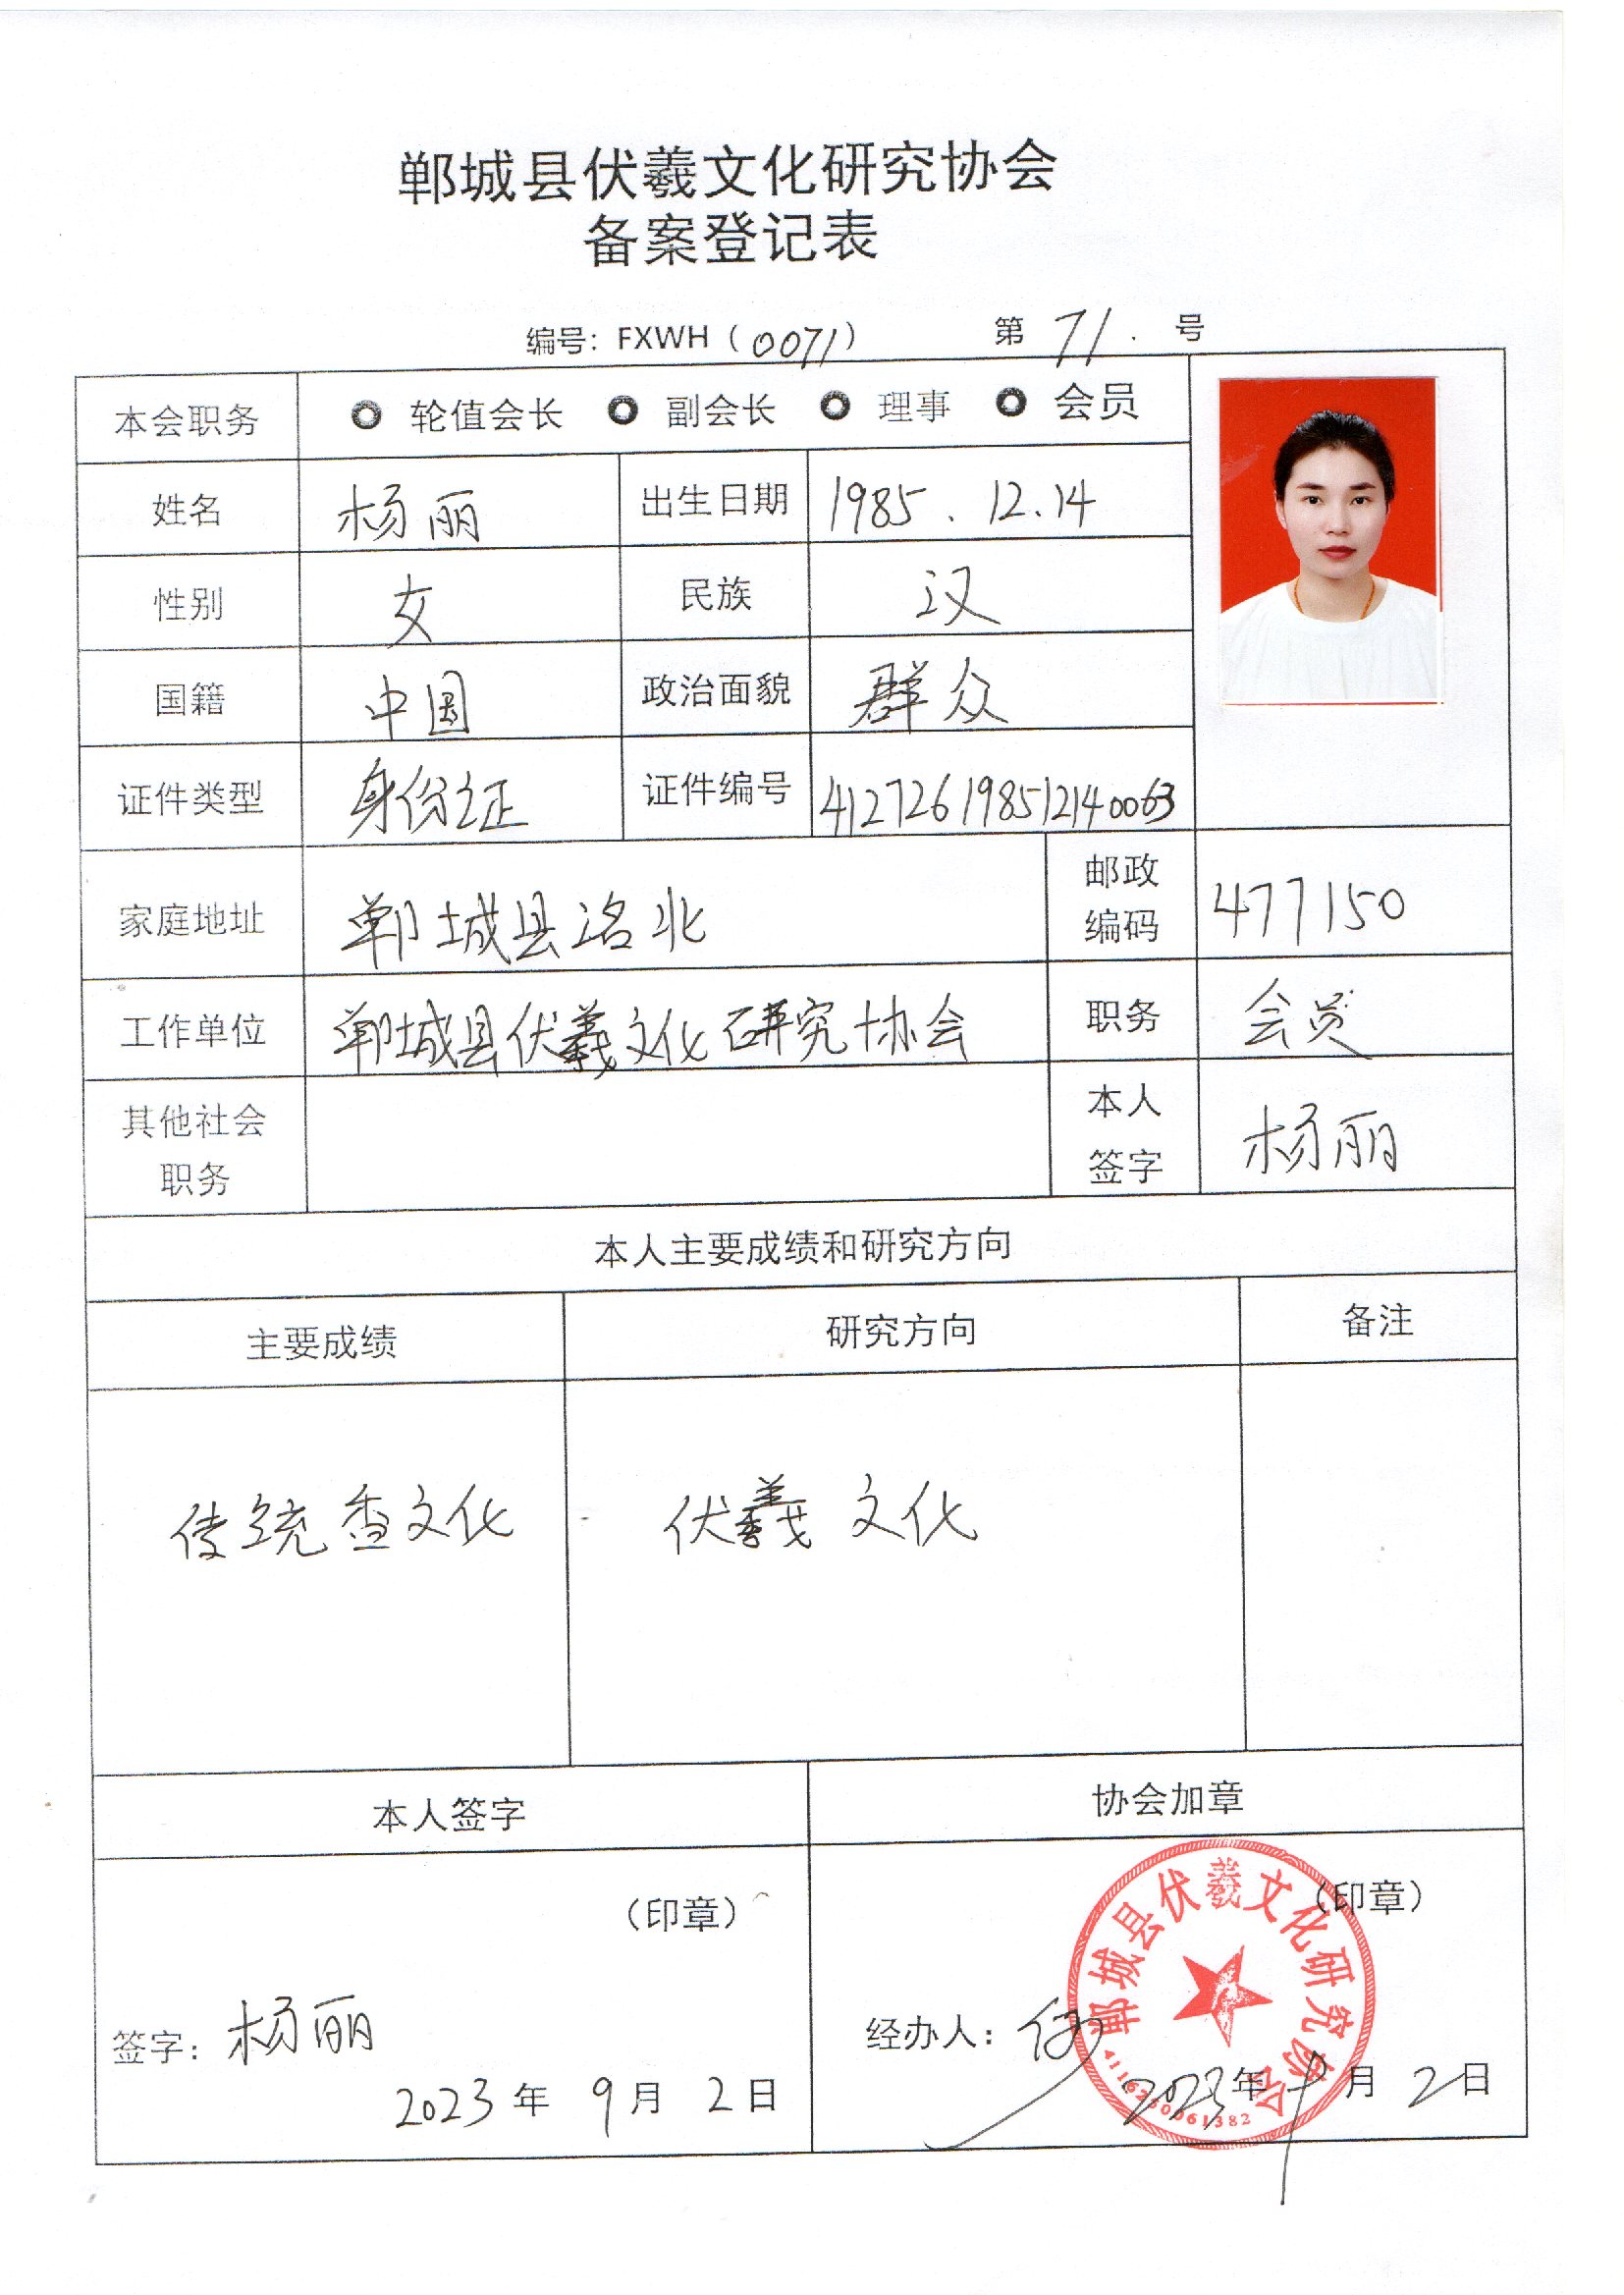 郸城县伏羲文化研究协会
备案登记表
编号：FXWH（0071） 第 71. 号
本会职务 轮值会长 副会长 理事 会员
姓名 杨丽 出生日期 1985.12.14
性别 女 民族 汉
国籍 中国 政治面貌 群众
证件类型 身份证 证件编号 412726198512140063
家庭地址 郸城县洺北 邮政编码 477150
工作单位 郸城县伏羲文化研究协会 职务 会员
其他社会职务 本人签字 杨丽
本人主要成绩和研究方向
主要成绩 研究方向 备注
传统香文化 伏羲文化
本人签字 协会加章
（印章） （印章）
签字：杨丽 经办人：
2023年9月2日 2023年9月2日
郸城县伏羲文化研究协会
4116250061382